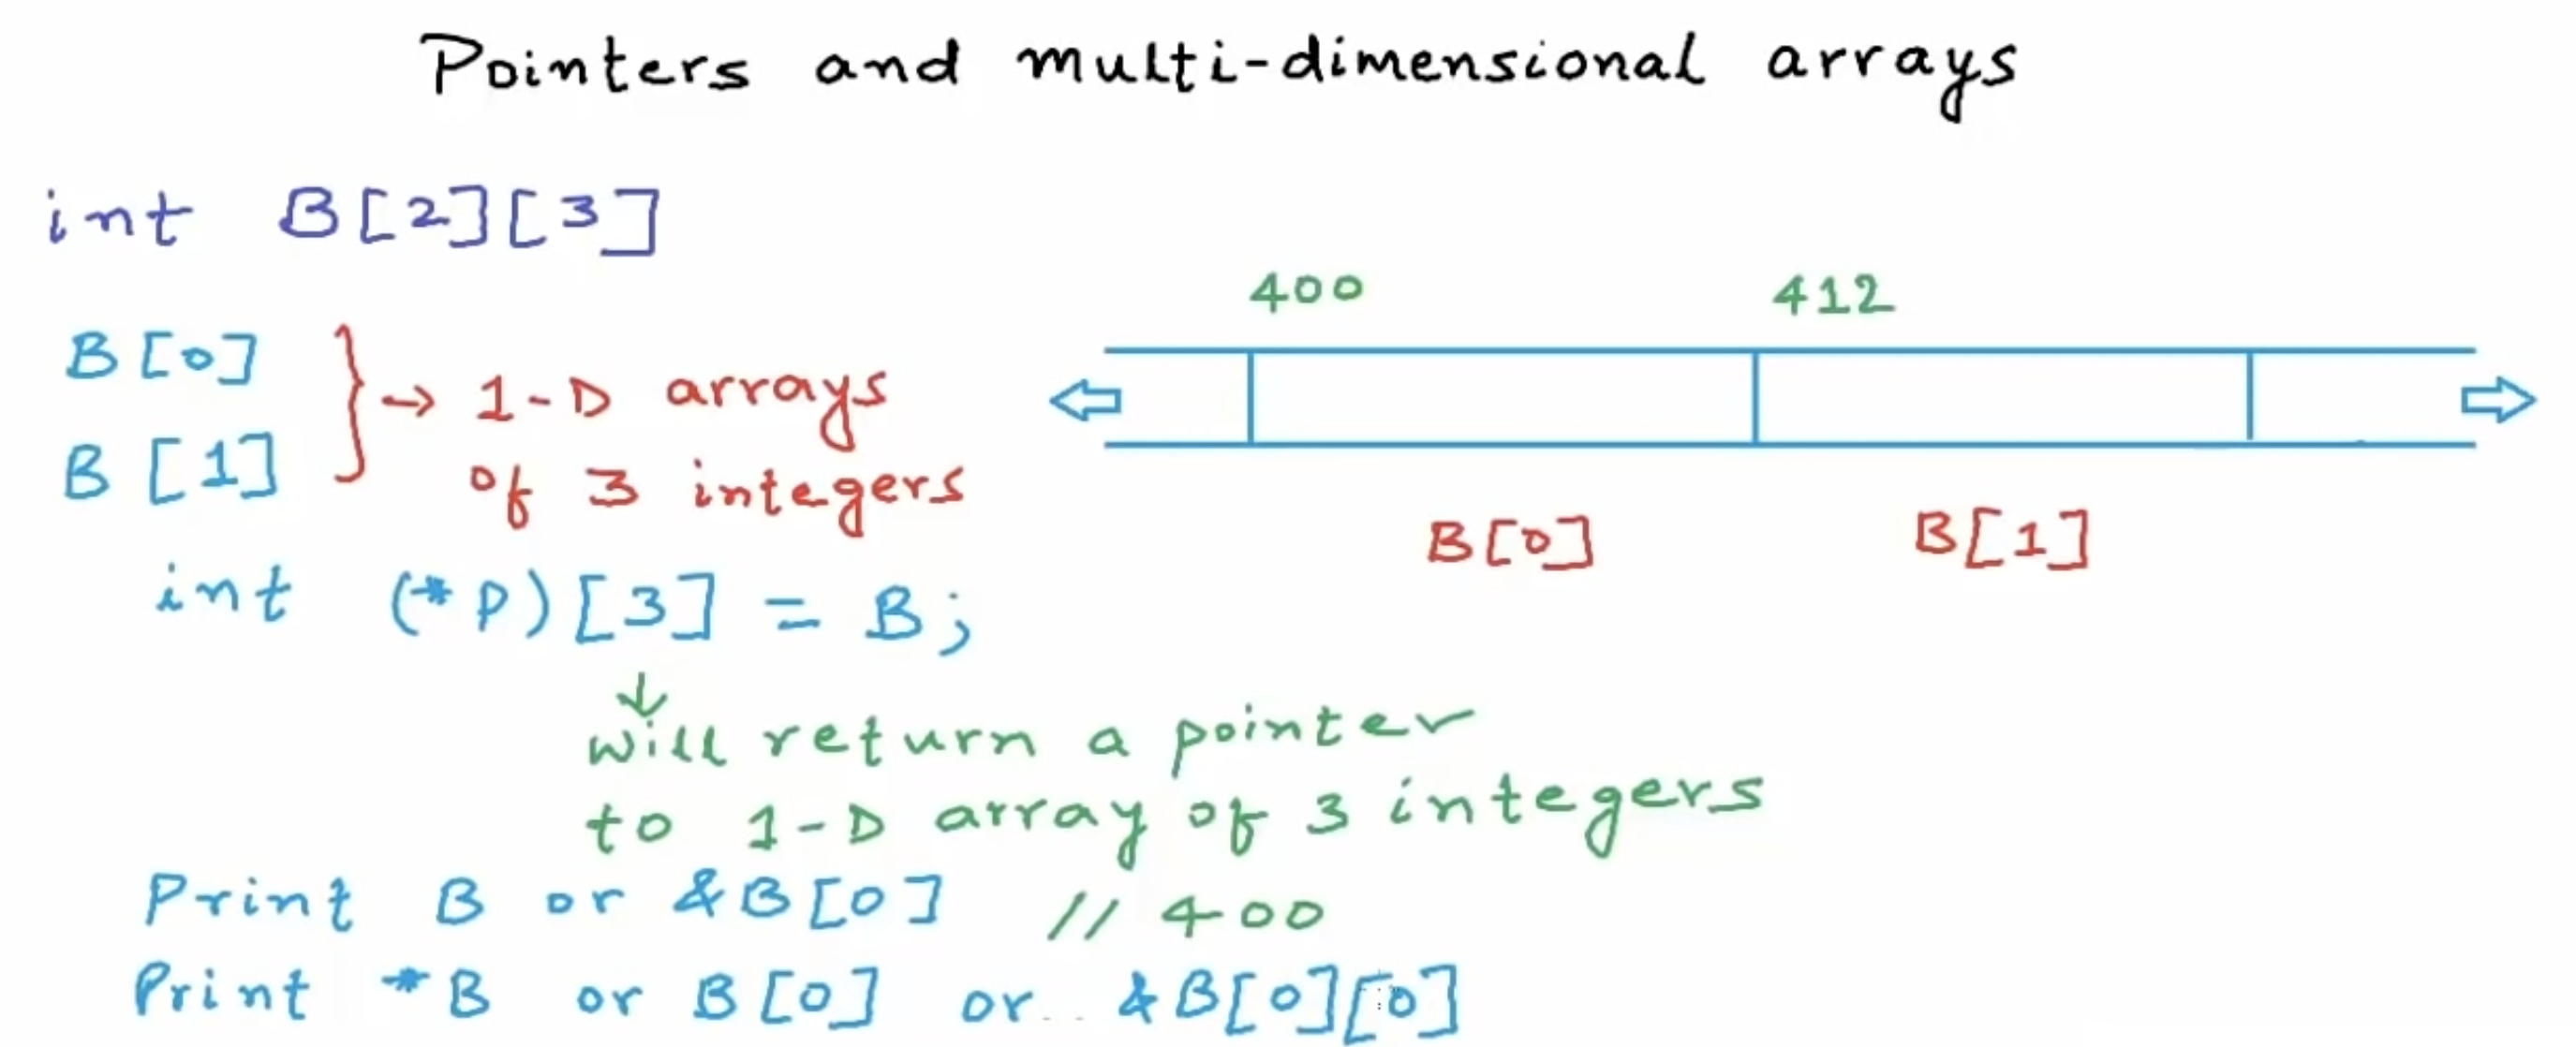 Pointers and multi-dimensional arrays
int B[2][3]
400 412
B[0] } → 1-D arrays
B[1] of 3 integers
B[0] B[1]
int (*P)[3] = B;
↓
will return a pointer
to 1-D array of 3 integers
Print B or &B[0] // 400
Print *B or B[0] or &B[0][0]